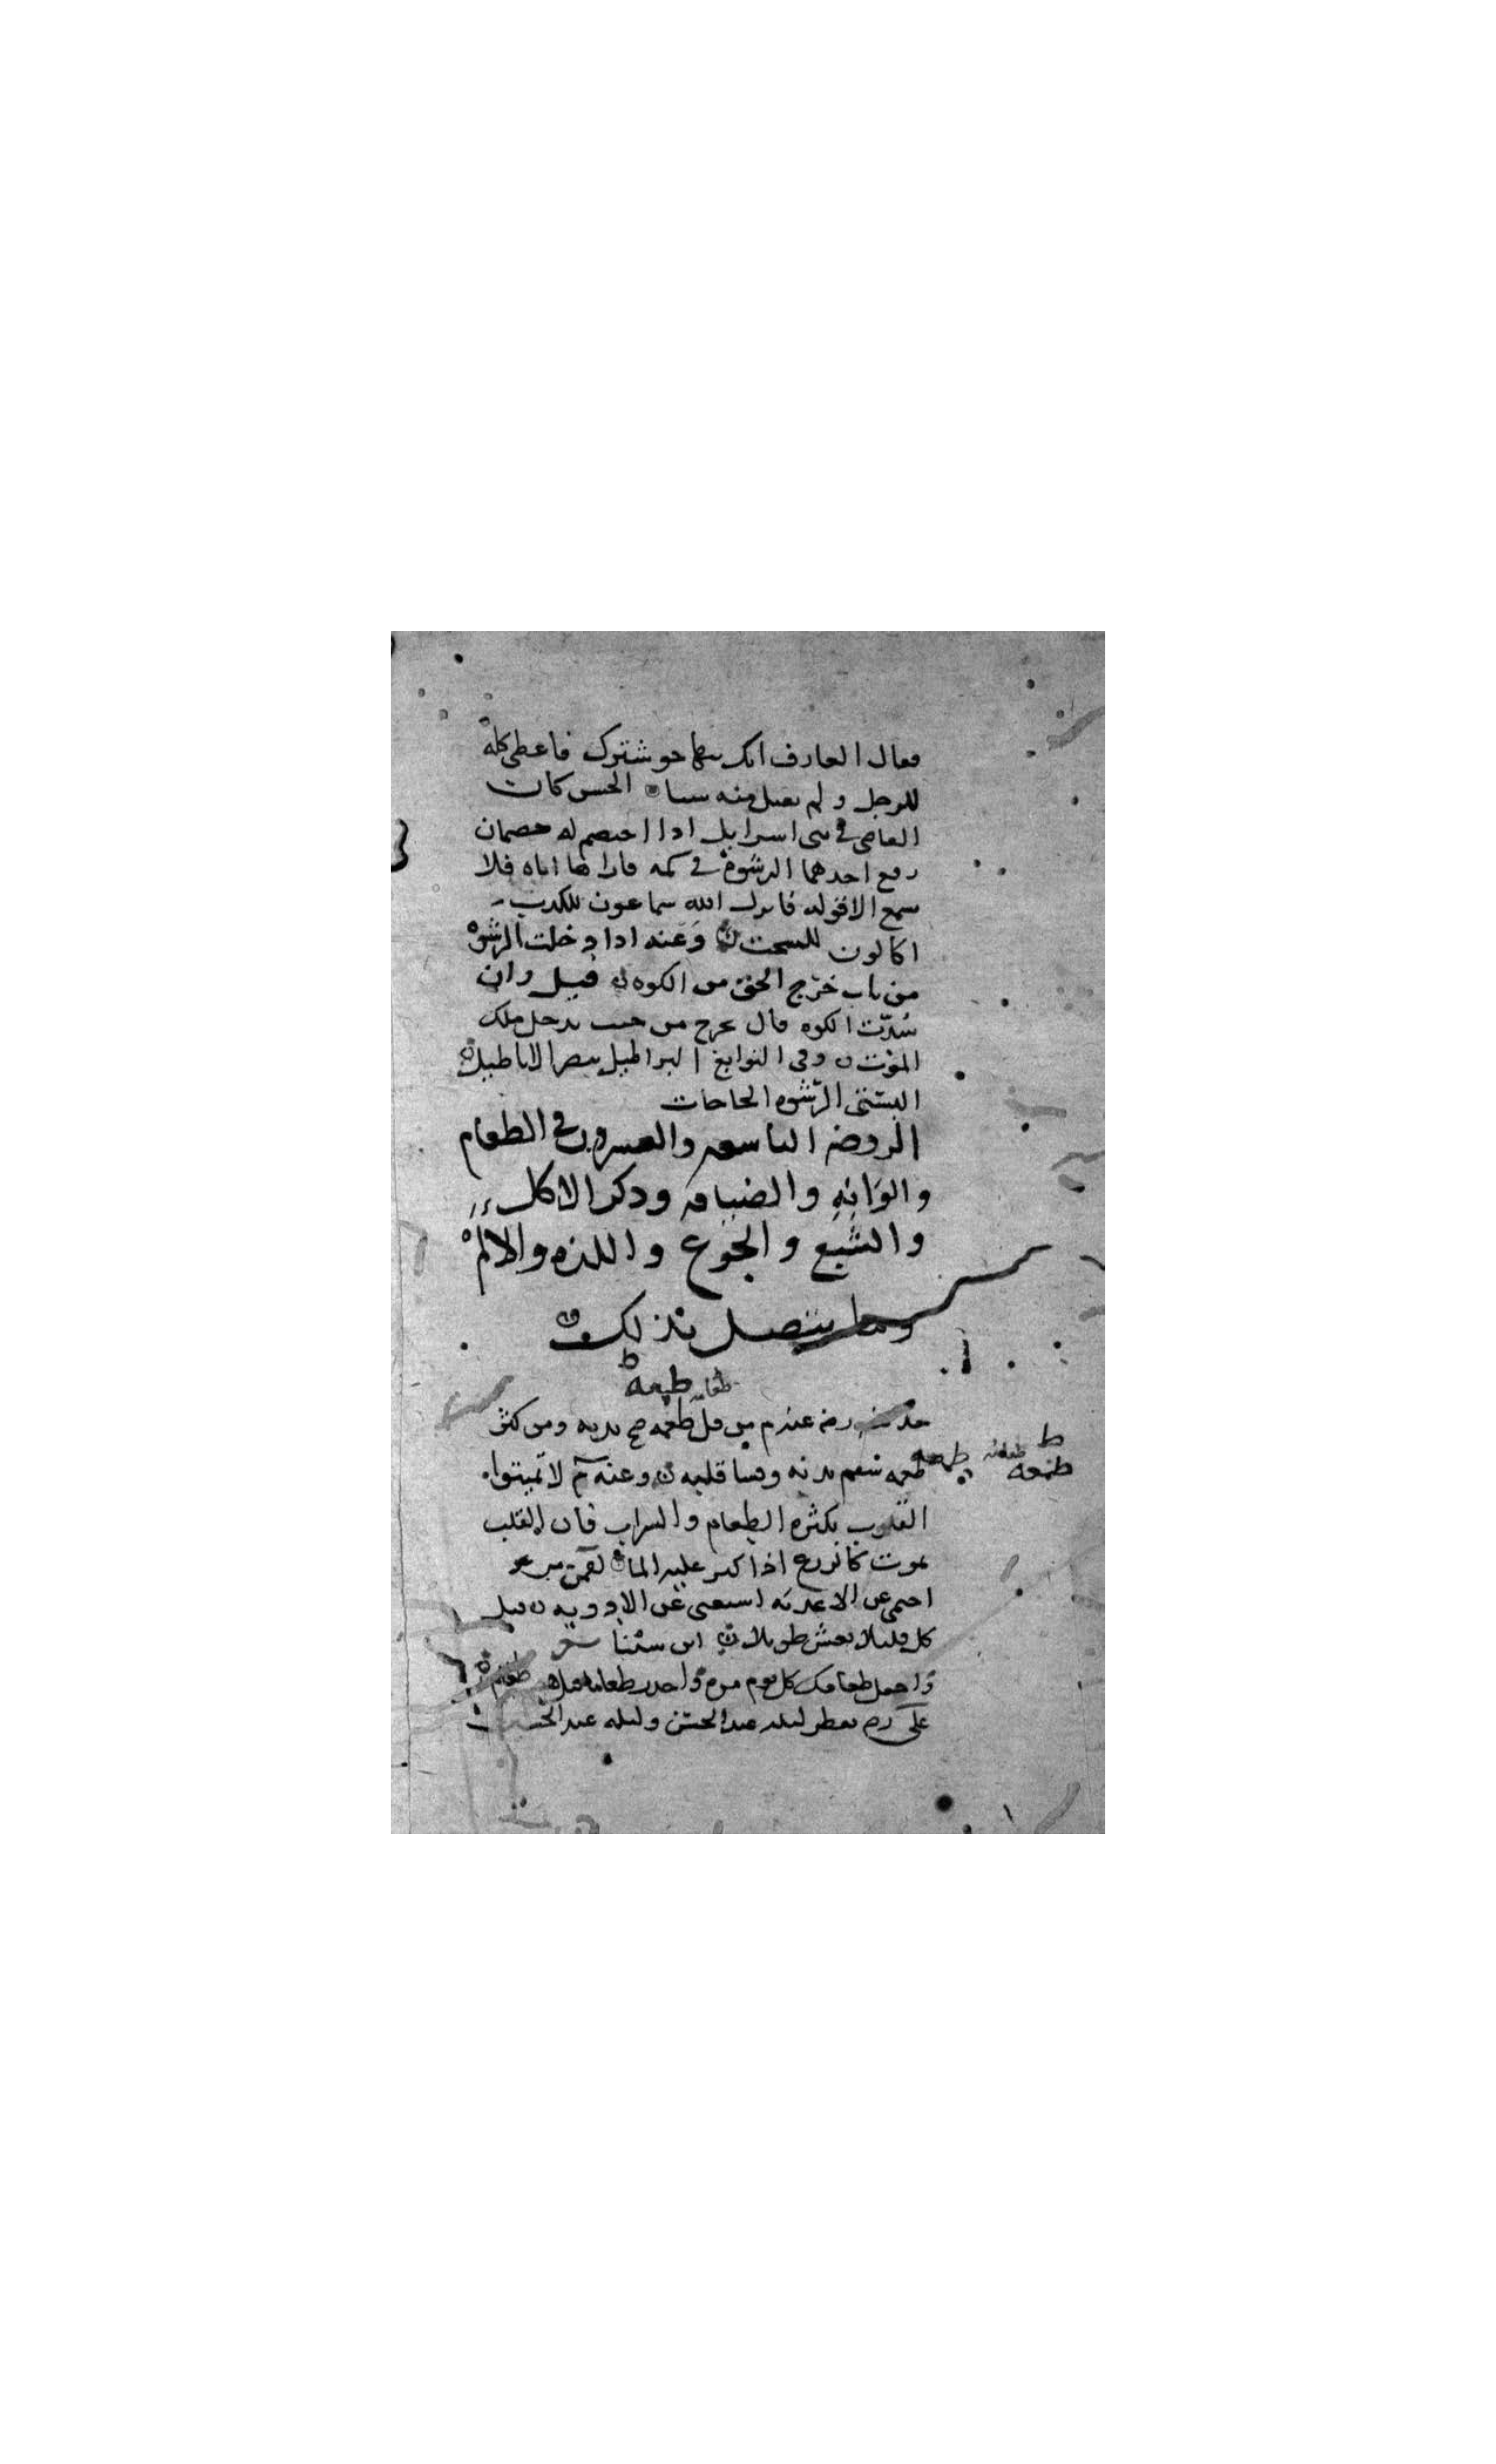 فقال العارف انك بتنها خو شترك فاعطى كله
للرجل و لم يقبل منه شيا الحسن كان
القاضى فى بنى اسرايل اذا اختصم له خصمان
رفع احدهما الرشوة فى كمه فاراها اياه فلا
يسمع الا قوله فانزل الله سماعون للكذب
اكالون للسحت وعنه اذا دخلت الرشوة
من باب خرج الحق من الكوه قيل وان
سُدّت الكوه قال يخرج من حيث يدخل ملك
الموت وفى النوابغ البراطيل تنصر الاباطيل
البستى الرّشوه الحاجات
الروضه التاسعه والعشرون فى الطعام
والوانه والضيافه وذكر الاكل
والشبع والجوع واللذه والالم
وما يتصل بذلك
طعامه طعمه
حذيفه رضه عنه م من قل طعمه صح بدنه ومن كثر
طعمه سقم بدنه وقسا قلبه وعنه م لا تميتوا
القلوب بكثره الطعام والشراب فان القلب
يموت كالزرع اذا كثر عليه الما لقمن من
احتمى عن الاغذيه استغنى عن الادويه قيل
كل قليلا تعش طويلا ابن سينا شعر
واجعل طعامك كل يوم مرة واحذر طعاما قبل هضم طعام
على رضه يفطر ليله عند الحسن وليله عند الحسين